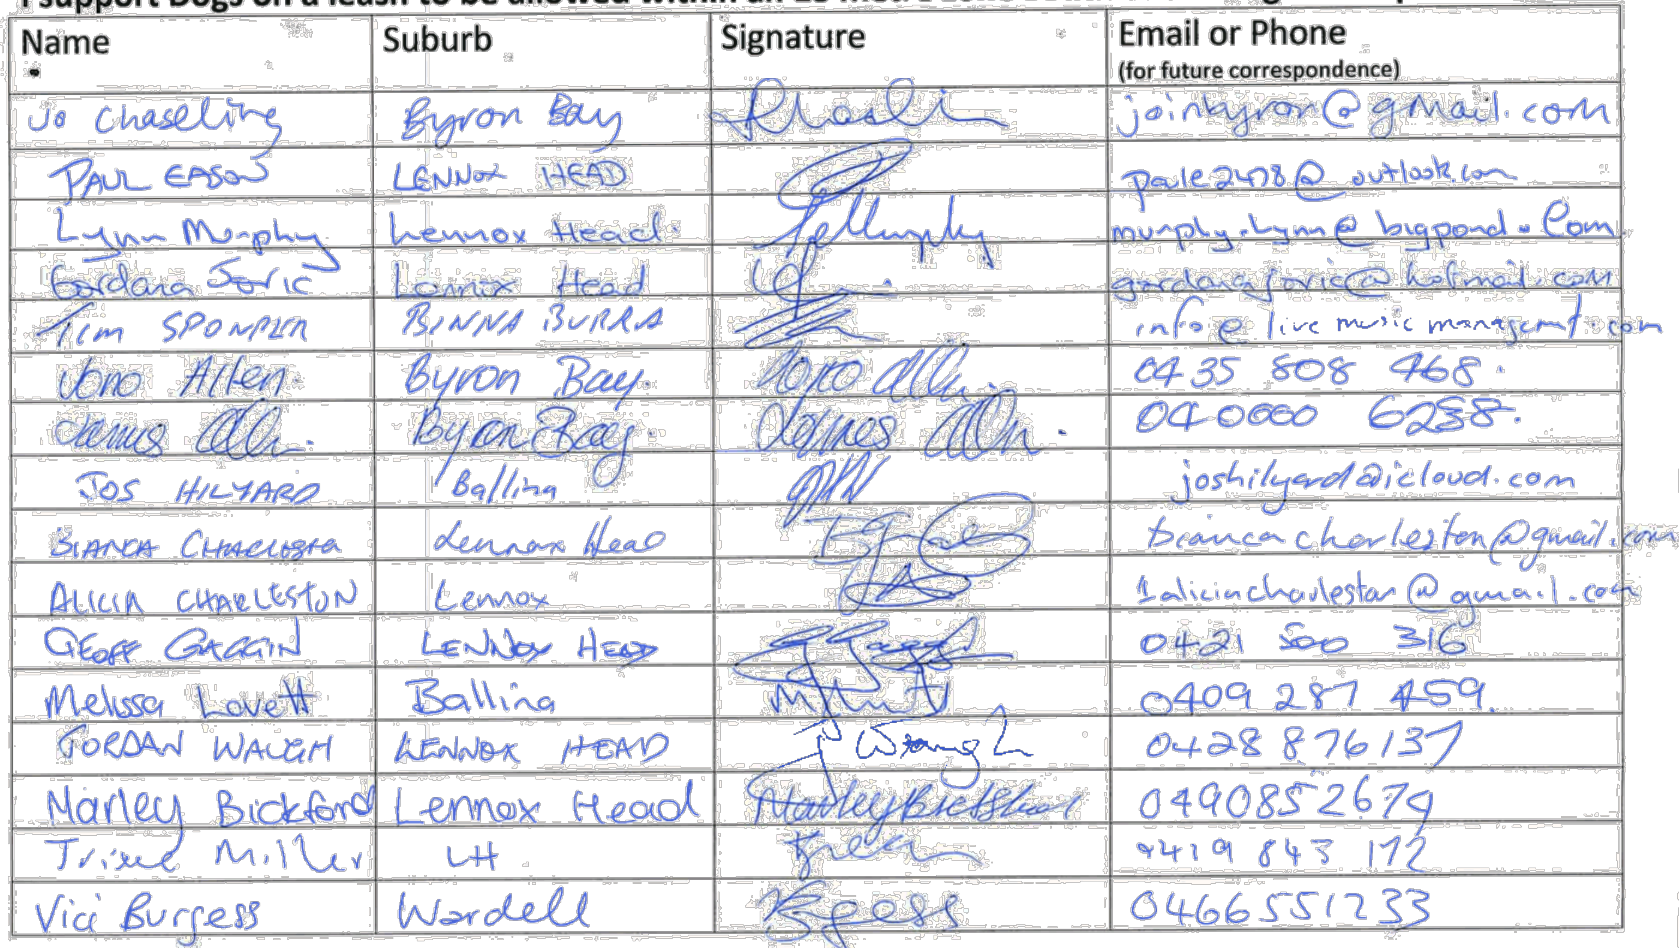 Name Suburb Signature Email or Phone
(for future correspondence)
Jo Chaseling Byron Bay joinbyron@gmail.com
PAUL EASON LENNOX HEAD paule2478@outlook.com
Lynn Murphy Lennox Head. murphy.lynn@bigpond.com
Gordana Jovic Lennox Head gordanajovic@hotmail.com
TIM BINNA BURRA info@livemusicmanagemt.com
Jono Allen. Byron Bay. Jono Allen. 0435 808 468.
James Allen. Byron Bay. James Allen. 040000 6288.
JOS HILYARD Ballina joshilyard@icloud.com
BIANCA CHARLESTON Lennox Head biancacharleston@gmail.com
ALICIA CHARLESTON Lennox 1aliciacharleston@gmail.com
GEOFF GAGGIN LENNOX HEAD 0421 500 316
Melissa Lovett Ballina 0409 287 459.
JORDAN WAUGH LENNOX HEAD 0428 876137
Marley Bickford Lennox Head Marley Bickford 0490852679
Miller LH 0419 843 172
Vici Burgess Wardell 0466551233